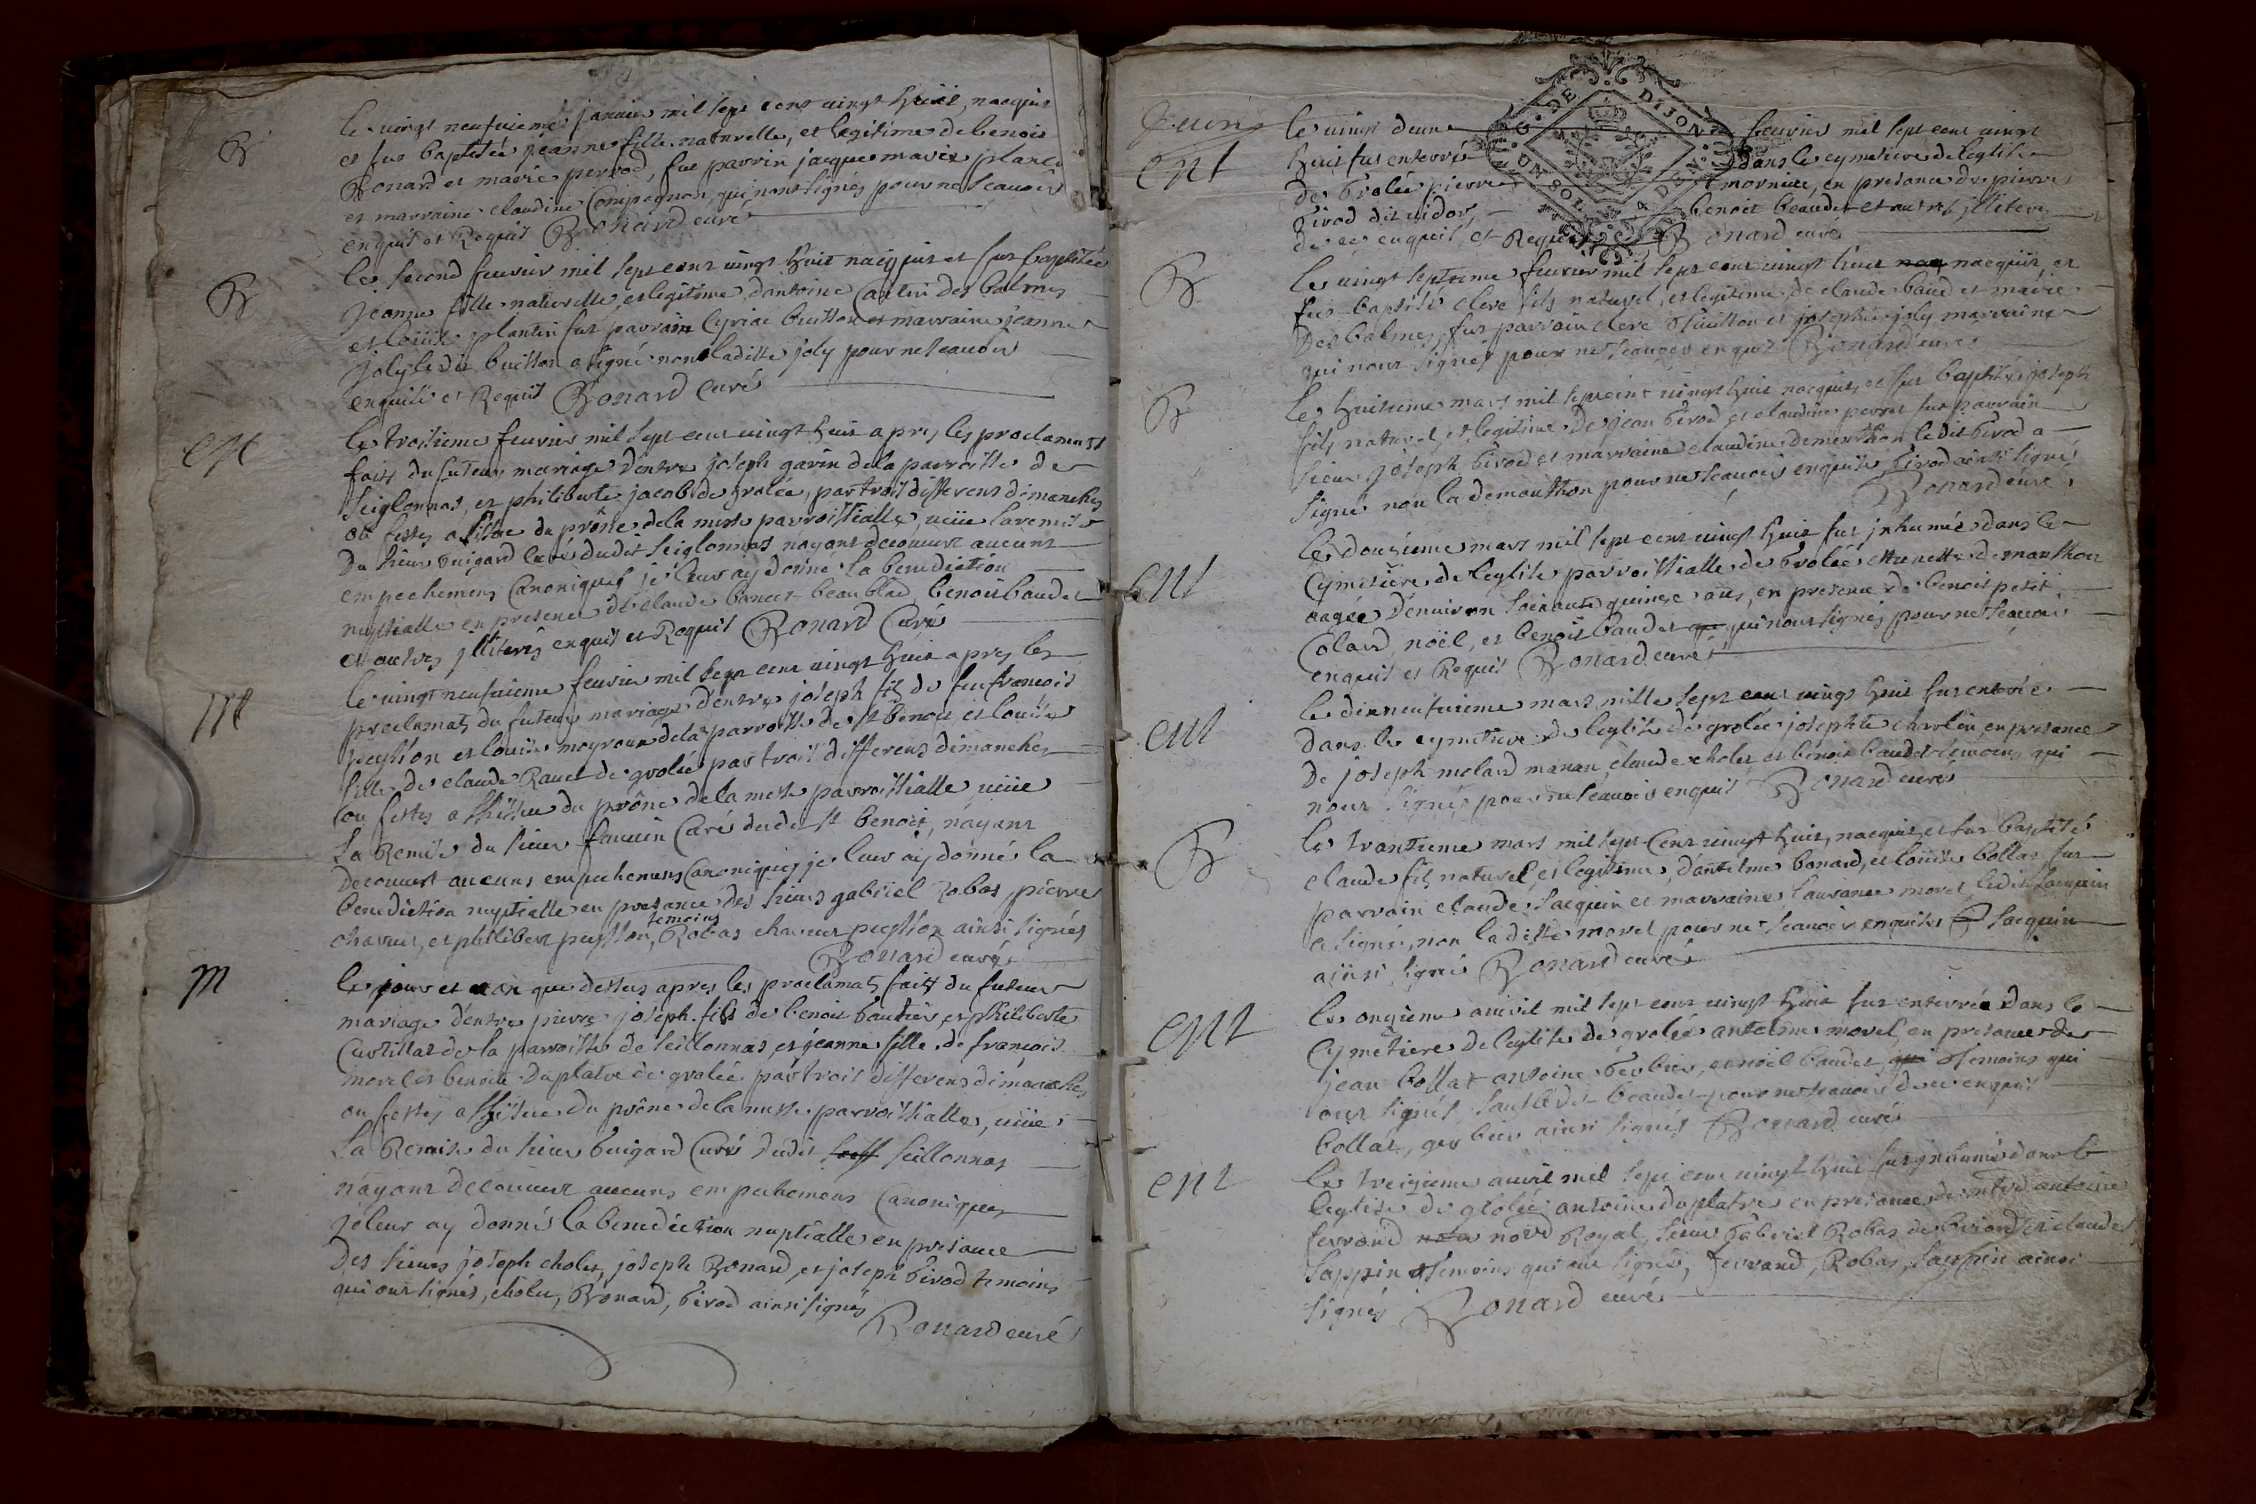 B
le vingt neufuieme januier mil sept cent vingt huit, nacquit
et fut baptisée jeanne fille naturelle, et legitime de benoit
Bonard et marie pervod, fut parrin jacque marix planc
et marraine claudine Compagnon, qui nont signés pour ne scauoir
enquis et Requis Bonard curé
B
le second feurier mil sept cent vingt huit nacquit et fut baptisée
jeanne fille naturelle, et legitime dantoine Carlin des balmes
et loüise plantin fut parrain Cyriac buisson et marraine jeanne
joly ledit buisson a signé non laditte joly pour ne scauoir
enquise et Requis Bonard Curé
le troisieme feurier mil sept cent vingt huit apres les proclamats
faits du futeur mariage d'entre joseph gavin de la parroisse de
seiglonnas, et philiberte jacob de grolée, par trois differens dimanches
ou festes a lissue du prône de la messe parroissialle, veüe la remise
du sieur buigard Curé dudit seiglonnas nayant decouuert aucuns
empechemens Canoniques je leur ay donné la benediction
nuptialle en presence de claude bancet beaublad, benoit baudet
et autres jlliterés enquis et Requis Bonard Curé
le vingt neufuieme feurier mil sept cent vingt huit apres les
proclamats du futeur mariage d'entre joseph fils de feu francois
peysson et loüise moyroux de la parroisse de st benoit, et loüise
fille de claude Rauet de grolée par trois differens dimanches
ou festes a lissue du prône de la messe parroissialle veüe
la Remise du sieur fauuin Curé dudit st benoit, nayant
decouuert aucuns empechemens Canoniques je leur ay donné la
benediction nuptialle en presance des sieurs gabriel Robas, pierre
temoins
chareur, et philibert peysson, Robas chareur peysson ainsi signés
Bonard curé
M
le jour et an que dessus apres les proclamats faits du futeur
mariage d'entre pierre joseph fils de benoit bautier, et philiberte
Curtillat de la parroisse de seillonnas, et jeanne fille de francois
morel et benoite Duplatre de grolée par trois differens dimanches
ou festes a lissue du prône de la messe parroissialle, veüe
la Remise du sieur buigard Curé dudit seillonnas
nayant decouuert aucuns empechemens Canoniques
je leur ay donné la benediction nuptialle en presance
des sieurs joseph cholet, joseph Bonard, et joseph birod temoins
qui ont signés, cholet, Bonard, birod ainsi signés
Bonard curé
G. DE DIJON
ent
le vingt deux feurier mil sept cent vingt
huit fut enterré dans le cymetiere de leglise
de Grolée pierre mornieu, en presance de pierre
birod dit vidor, benoit beaudet et autres jlliterés
de ce enquis, et Requis Bonard curé
B
le vingt septieme feurier mil sept cent vingt huit nacquit, et
fut baptisé clere fils naturel, et legitime de claude baud et marie
Des balmes, fut parrain clere buisson et josephte joly marraine
qui nont signés pour ne scauoir enquis Bonard curé
B
le huitieme mars mil sept cent vingt huit nacquit, et fut baptisé joseph
fils naturel, et legitime de jean birod et claudine perret fut parrain
sieur joseph birod et marraine claudine demouthon ledit birod a
signé non la demouthon pour ne scauoir enquise birod ainsi signé
Bonard curé
ent
le douzieme mars mil sept cent vingt huit fut jnhumée dans le
Cymetiere de leglise parroissialle de Grolée ettiennette demouthon
aagée denuiron soixante quinze ans, en presence de benoit petit,
Colard, noël, et benoit baudet qui nont signés pour ne scauoir
enquis et Requis Bonard curé
ent
le dixneufuieme mars mille sept cent vingt huit fut enterrée
dans le cymetiere de leglise de grolée josephte charlin en presance
de joseph molard manan, claude cholet, et benoit baudet temoins, qui
nont signés pour ne scauoir enquis Bonard curé
B
le trantieme mars mil sept Cent vingt huit, nacquit, et fut baptisé
claude fils naturel, et legitime, dantelme bonard, et loüise bollat fut
parrain claude sacquin et marraine laurance morel ledit sacquin
a signé, non laditte morel pour ne scauoir enquise sacquin
ainsi signé Bonard curé
ent
le onzieme auril mil sept cent vingt huit fut enterrée dans le
Cymetiere de leglise de grolée antelme morel, en presance de
jean bollat antoine berbier, et noël baudet, temoins qui
ont signés sauf ledit beaudet pour ne scauoir de ce enquis
bollat, gerbier ainsi signés Bonard curé
ent
le treizieme auril mil sept cent vingt huit fut jnhumé dans le
leglise de grolée antoine duplatre en presance de mtre antoine
ferrand nore Royal, sieur Gabriel Robas de briord, et claude
sappin temoins qui ont signés, ferrand, Robas, sappin ainsi
signés Bonard curé